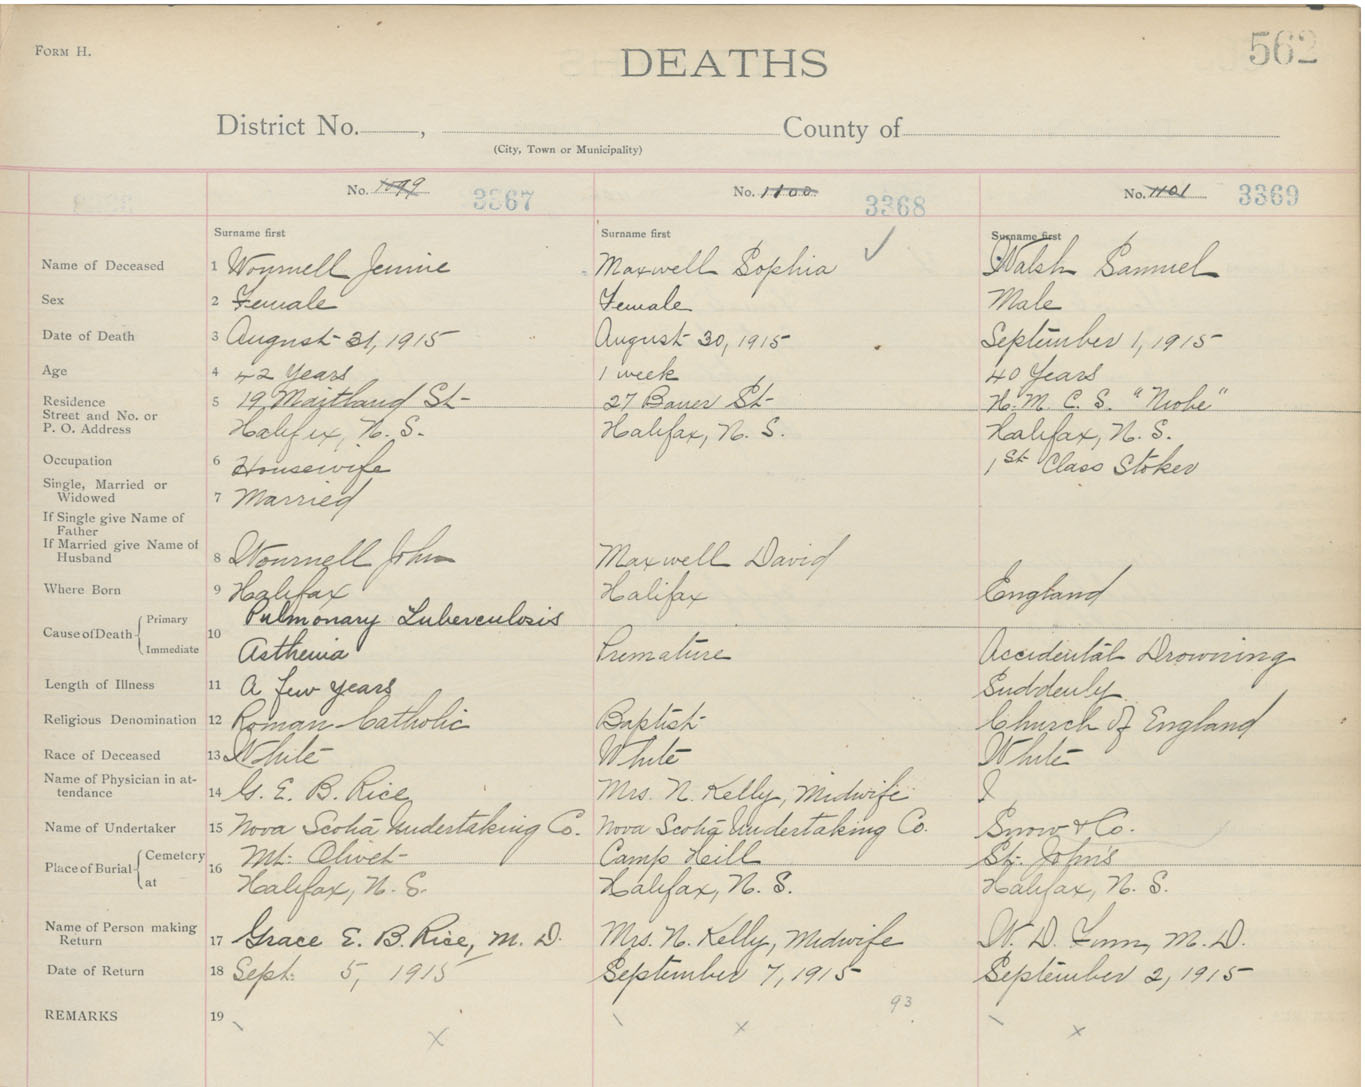 FORM H.
DEATHS
562
District No. , County of
(City, Town or Municipality)
No. 1099 3367
No. 1100 3368
No. 1101 3369
Surname first
Surname first
Surname first
Name of Deceased 1 Wournell Jennie Maxwell Sophia Walsh Samuel
Sex 2 Female Female Male
Date of Death 3 August 31, 1915 August 30, 1915 September 1, 1915
Age 4 42 Years 1 week 40 Years
Residence 5 19 Maitland St 27 Bauer St H. M. C. S. "Niobe"
Street and No. or
P. O. Address Halifix, N. S. Halifax, N. S. Halifax, N. S.
Occupation 6 Housewife 1st Class Stoker
Single, Married or
Widowed 7 Married
If Single give Name of
Father
If Married give Name of
Husband 8 Wournell John Maxwell David
Where Born 9 Halifax Halifax England
Cause of Death Primary 10 Pulmonary Tuberculosis
Immediate Asthenia Premature Accidental Drowning
Length of Illness 11 A few years Suddenly
Religious Denomination 12 Roman Catholic Baptist Church of England
Race of Deceased 13 White White White
Name of Physician in at-
tendance 14 G. E. B. Rice Mrs. N. Kelly, Midwife
Name of Undertaker 15 Nova Scotia Undertaking Co. Nova Scotia Undertaking Co. Snow & Co.
Place of Burial Cemetery 16 Mt. Olivet Camp Heill St. John's
at Halifax, N. S. Halifax, N. S. Halifax, N. S.
Name of Person making
Return 17 Grace E. B. Rice, M. D. Mrs. N. Kelly, Midwife W. D. Finn, M. D.
Date of Return 18 Sept. 5, 1915 September 7, 1915 September 2, 1915
93
REMARKS 19 \ x \ x \ x